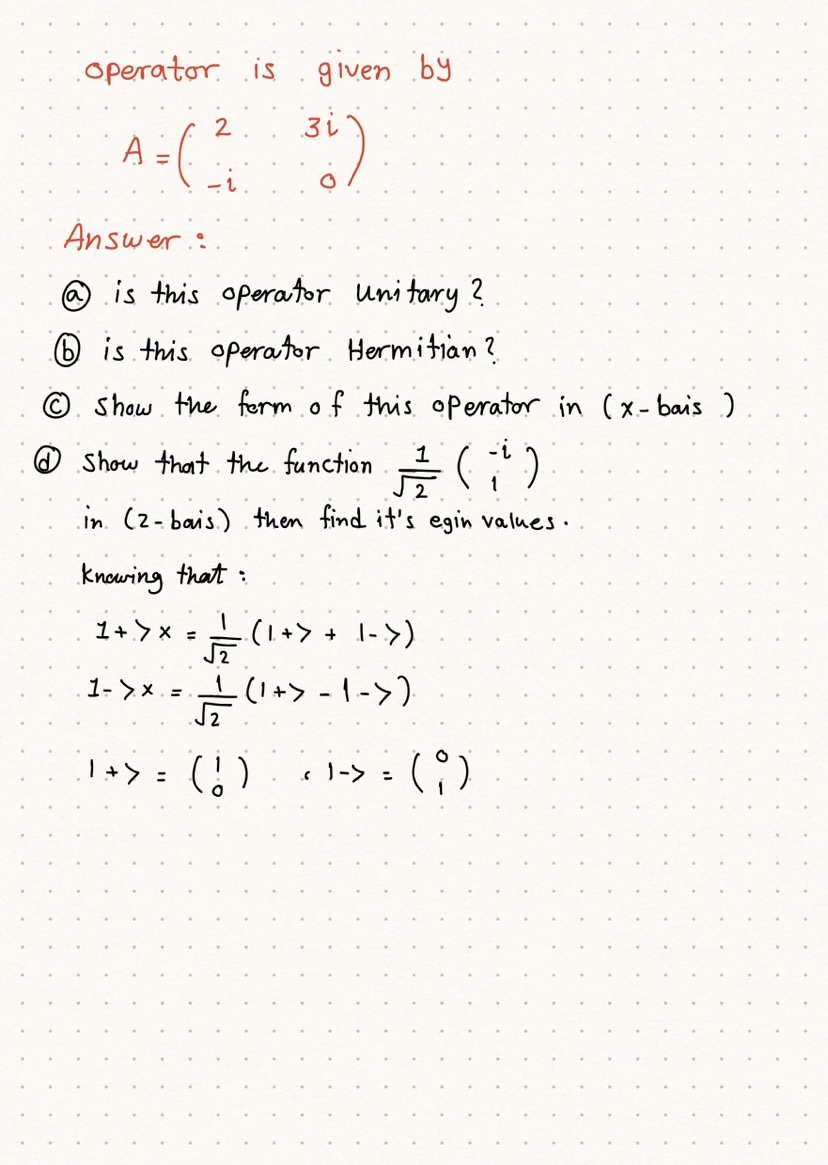 operator is given by
A = ( 2 3i
-i 0 )
Answer :
ⓐ is this operator unitary ?
ⓑ is this operator Hermitian ?
ⓒ show the form of this operator in ( x - bais )
ⓓ show that the function 1/√2 ( -i 1 )
in (z - bais) then find it's egin values .
knowing that :
1+>x = 1/√2 (1+> + 1->)
1->x = 1/√2 (1+> - 1->)
1+> = ( 1 0 ) , 1-> = ( 0 1 )